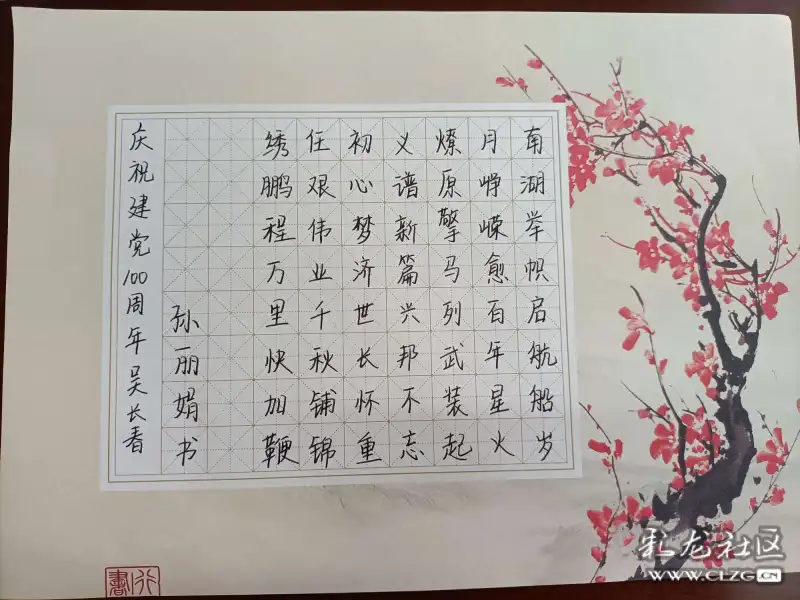 南湖举帜启航船岁
月峥嵘愈百年星火
燎原擎马列武装起
义谱新篇兴邦不忘
初心梦济世长怀重
任艰伟业千秋铺锦
绣鹏程万里快加鞭
孙丽娟书
庆祝建党100周年吴长春
彩龙社区
WWW.CLZG.CN